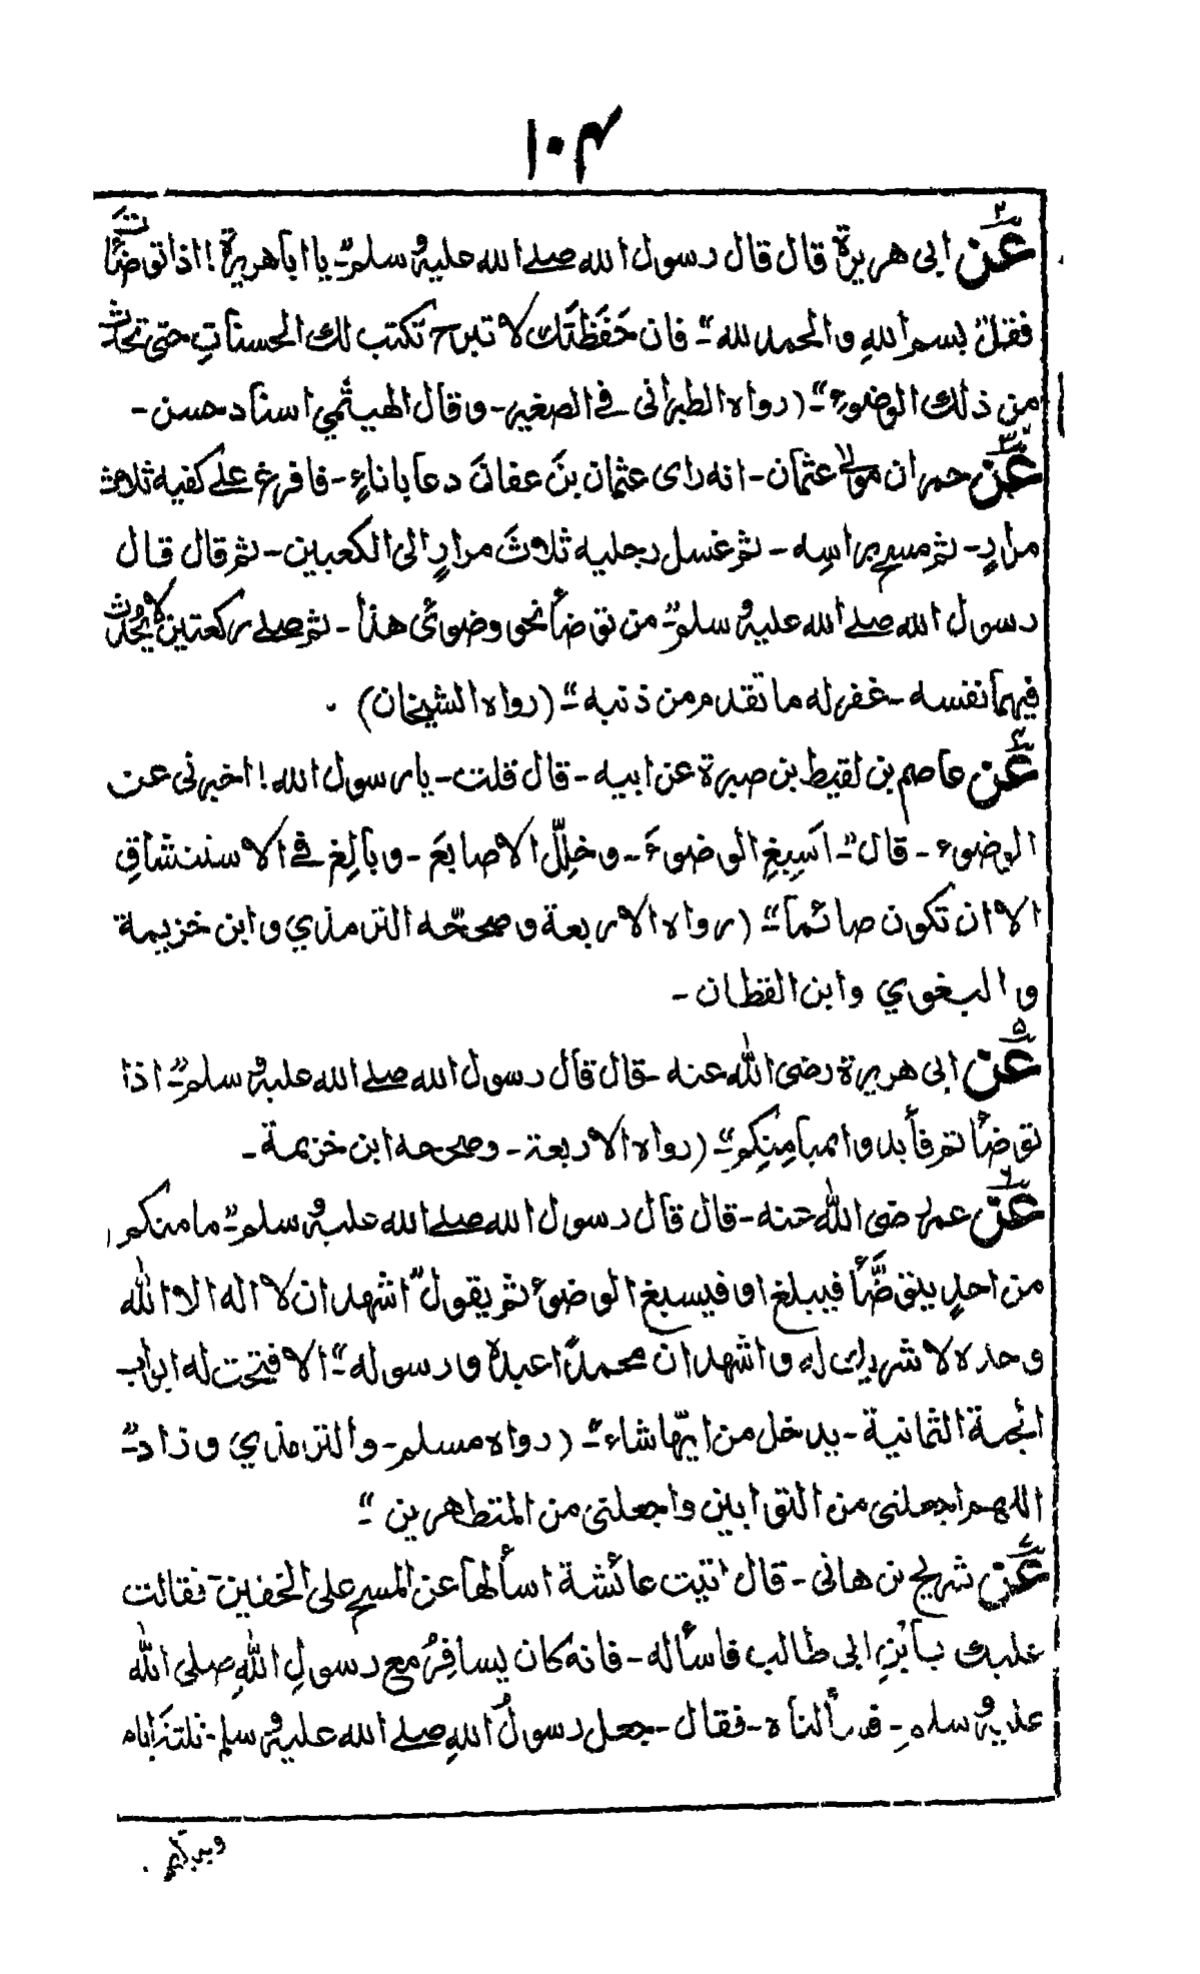 ۱۰۴
۲
عَن ابی هریرة قال قال رسول الله صلے الله علیه وسلم ״ یا ابا هریرة! اذا توضأت
فقل بسم اللهِ والحمد لله ״ فان حَفَظَتَك لا تبرح تکتب لك الحسناتِ حتی تحدث
من ذلك الوضوء ״ (رواه الطبرانی فے الصغیر - وقال الهیثمي اسناد حسن -
۳
عَن حمران مولٰے عثمان - انه رای عثمان بنَ عفانَ دعا باناءٍ - فافرغ علے کفیه ثلاث
مرارٍ - ثم مسح براسِه - ثم غسل رجلیه ثلاثَ مرارٍ الی الکعبین - ثم قال قال
رسول الله صلے الله علیه وسلم ״ من توضأ نحو وضوئی هذا - ثم صلے رکعتین لا یُحدّث
فیهما نفسه - غفر له ما تقدم من ذنبه ״ (رواه الشیخان) .
۴
عَن عاصم بن لقیط بن صبرة عن ابیه - قال قلت - یا رسول الله! اخبرنی عن
الوضوء - قال ״ اَسبِغِ الوضوءَ - وخلِّل الاصابعَ - وبالِغ فے الاستنشاقِ
الا ان تکون صائماً ״ (رواه الاربعة وصححّه الترمذي وابن خزیمة
والبغوي وابن القطان -
۵
عَن ابی هریرة رضی الله عنه - قال قال رسول الله صلے الله علیه وسلم ״ اذا
توضأتم فأبدوا بمیامِنِکم ״ (رواه الاربعة - وصححه ابن خزیمة -
۶
عَن عمر رضی الله عنه - قال قال رسول الله صلے الله علیه وسلم ״ ما منکم
من احدٍ یتوضَّأ فیبلغ او فیسبغ الوضوء ثم یقول ״ اشهد ان لا اله الا الله
وحده لا شریك له واشهد ان محمداً عبدهٗ ورسوله ״ الا فتحت له ابواب
الجنة الثمانیة - یدخل من ایّها شاء ״ (رواه مسلم - والترمذي وزاد ״
اللهم اجعلنی من التوابین واجعلنی من المتطهرین ״
۷
عَن شریح بن هانی - قال اتیت عائشة اسألها عن المسح علی الخفین - فقالت
علیك بابْنِ ابی طالب فاسأله - فانه کان یسافِرُ مع رسولِ اللهِ صلی الله
علیه وسلم - فسألناه - فقال - جعل رسولُ اللهِ صلے الله علیه وسلم - ثلثة ایام